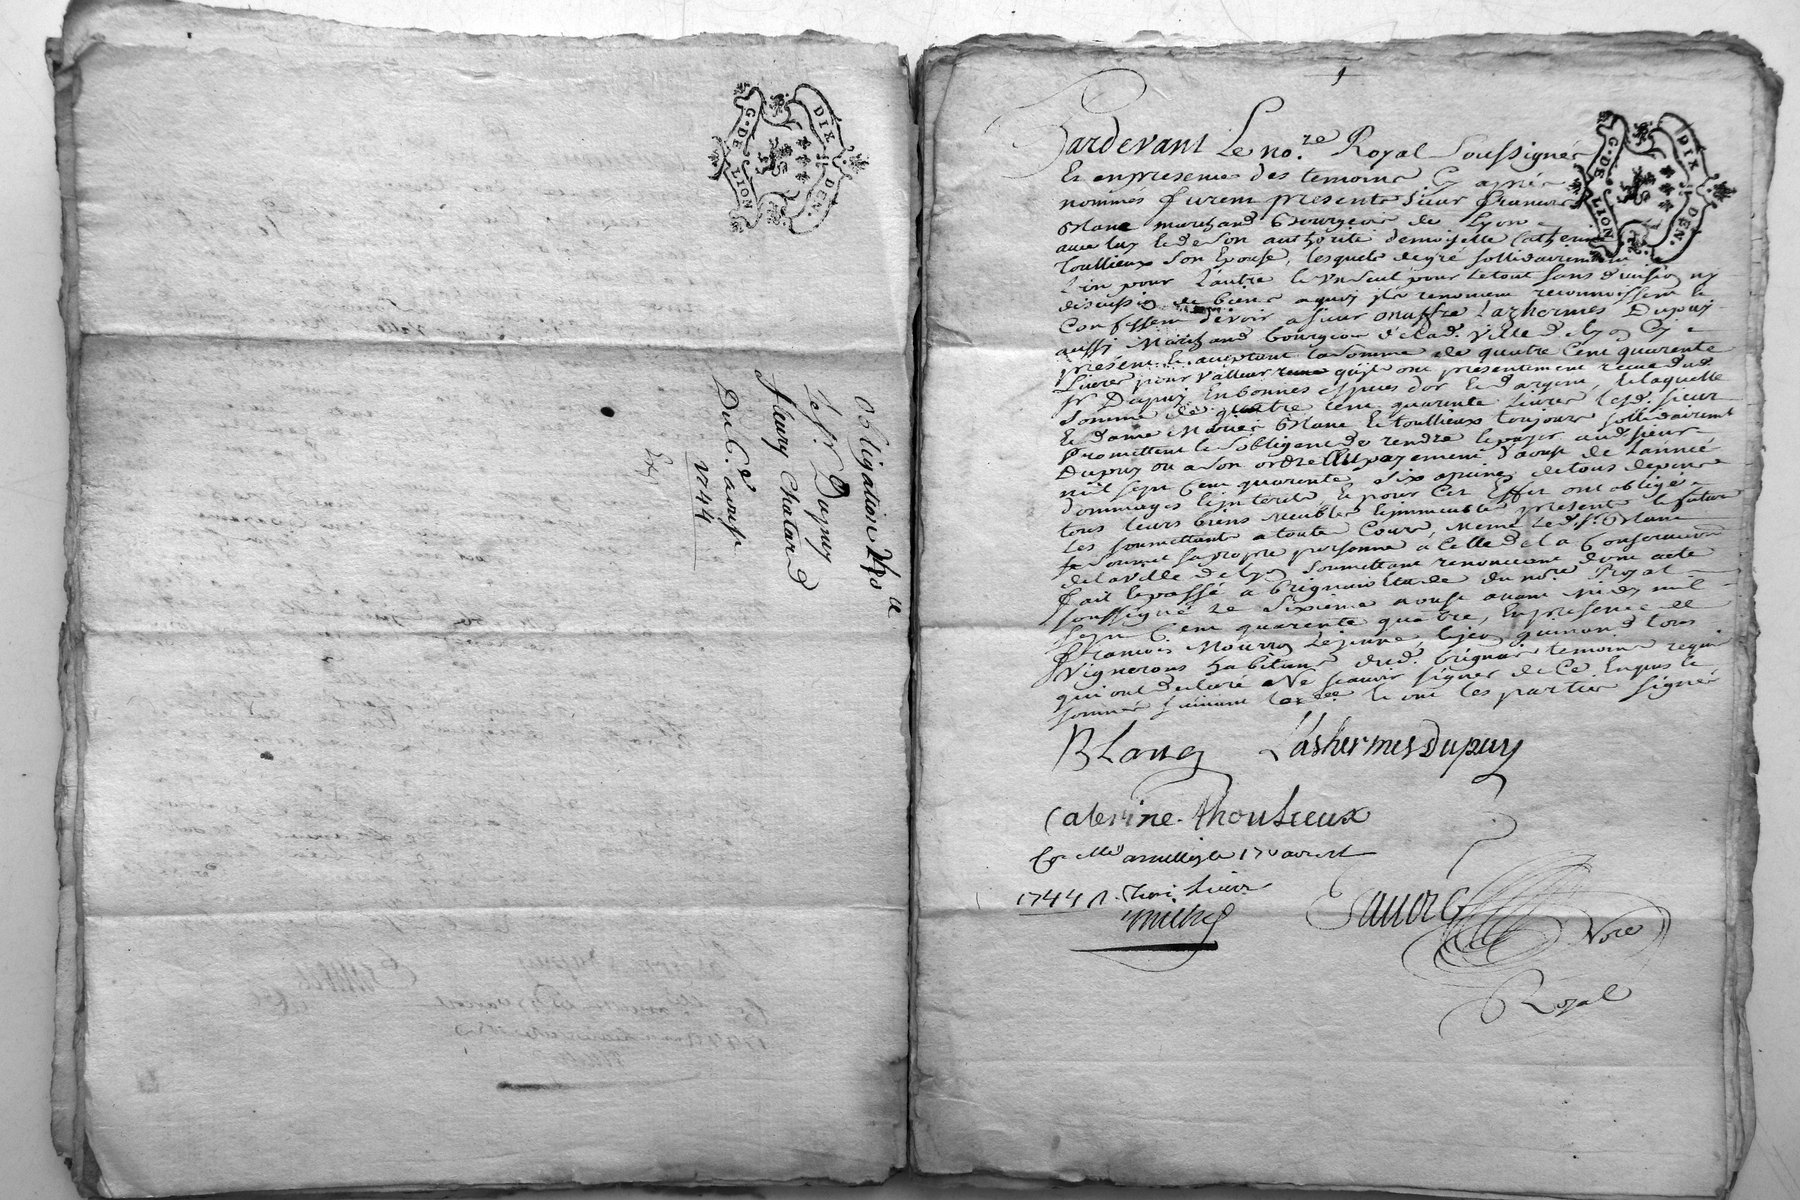 G. DE LION
DIX DEN.
Obligation
Le Sr. Dupuy
fleury Chatard
Du 6e aoust
1744
Exp
G. DE LION
DIX DEN.
Pardevant Le no.re Royal Soussigné
Et en presence des temoins Cy apres
nommés furent presents Sieur francois
Blanc marchand Bourgeois de Lyon
avec luy et de son authorité demoiselle Catherine
toullieux son Epouse, lesquels de gré sollidairement
L'un pour L'autre le un seul pour le tout sans division ny
discussion de biens a quoy ils renoncent reconnoissent et
Confessent devoir a sieur onuffre Lashermes Dupuy
aussy Marchand bourgeois de lad. ville de Lyon Cy
present et acceptant la somme de quatre Cent quarente
Livres pour valleur quils ont presentement receue dud.
Sr. Dupuy En bonnes especes d'or et d'argent, de laquelle
somme de quatre cent quarente livres lesd. sieur
Et dame Mariés Blanc et toullieux toujours sollidairement
promettent et s'obligent de rendre et payer aud. sieur
Dupuy ou a son ordre au payement d'aoust de L'année
mil sept Cent quarente six a peine de tous depens
dommages et interets, et pour Cet Effet ont obligé
tous leurs biens meubles et immeubles presents et futurs
Les soumettants a toute Cours meme led. Sr. Blanc
se soumet sa propre personne a Celle de la Conservation
de la ville de Lyon soumettant renonceant dont acte
fait et passé a brignais Etude du nore. Royal
soussigné Le sixieme aoust avant midy mil
sept Cent quarente quatre, En presence de
francois Mourron Lejeune, et jean guimond tous
Vignerons habitants dud. brignais temoins requis
qui ont declaré Ne scavoir signer de Ce Enquis et
sommés suivant Lordce. et ont les parties signé
Blanc Lashermes Dupuy
Caterine thoulieux
1744
Royal